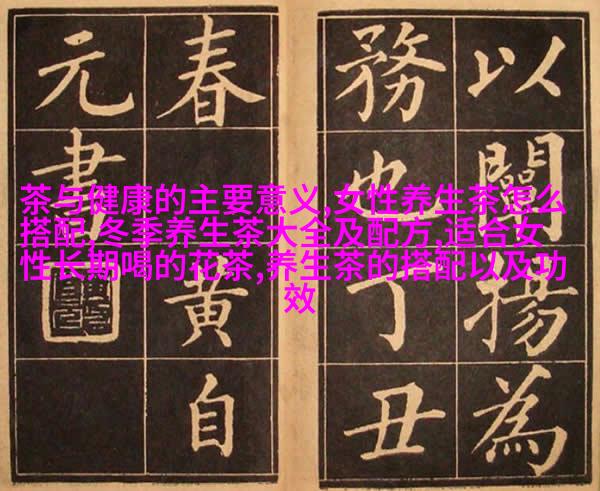 以闡揚為
務也丁丑
春
黄自
元書
茶与健康的主要意义,女性养生茶怎么
搭配,冬季养生茶大全及配方,适合女
性长期喝的花茶,养生茶的搭配以及功
效